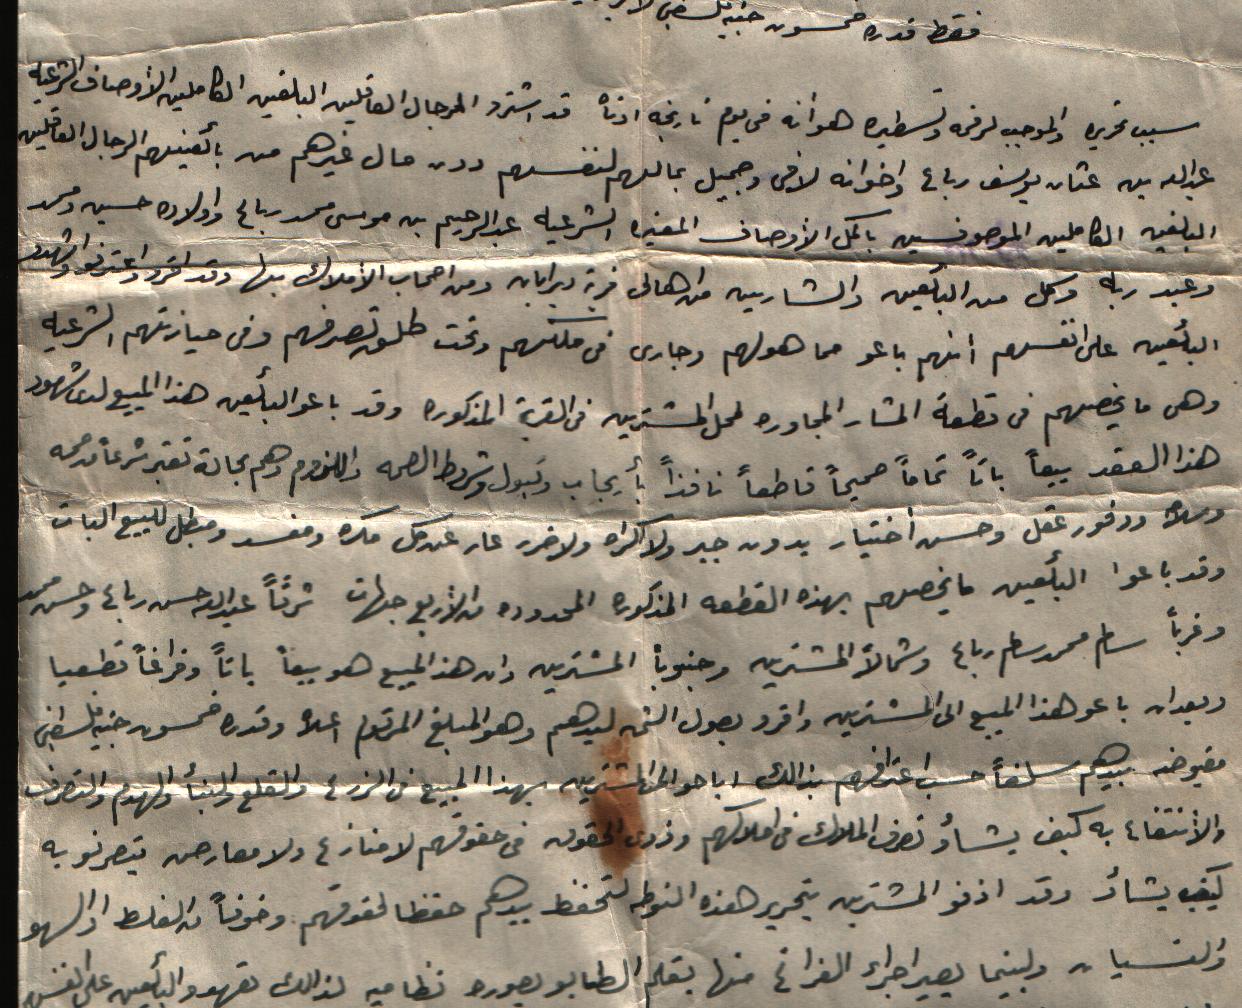 فقط قدره خمسون جنيه فلسطيني لا غير
سبب تحريره والموجب لرقمه وتسطيره هو انه في يوم تاريخه ادناه قد اشترو الرجال العاقلين البالغين الكاملين الأوصاف الشرعيه
عبدالله بن عثمان يوسف رباع واخوانه لافي وجميل بمالهم لنفسهم دون مال غيرهم من بائعينهم الرجال العاقلين
البالغين الكاملين الموصوفين باكمل الأوصاف المعتبره الشرعيه عبدالرحيم بن موسى محمد رباع واولاده حسين ومحمد
وعبد ربه وكل من البائعين والشاريين من اهالي قرية ديرابان ومن اصحاب الأملاك بها وقد اقرو واعترفو واشهدو
البائعين على انفسهم انهم باعو مما هو لهم وجاري في ملكهم وتحت طلق تصرفهم وفي حيازتهم الشرعيه
وهي ما يخصهم في قطعة المشار المجاوره لمحل المشتريين في القرية المذكوره وقد باعو البائعين هذا المبيع لدى شهود
هذا العقد بيعاً باتاً تماماً صحيحاً قاطعاً نافذاً بأيجاب وقبول وشروط الصحه واللزوم وهم بحالة تعتبر شرعاً من صحه
وسلامه ووفور عقل وحسن أختيار بدون جبر ولا اكراه ولا ضرر عار عن كل مكره ومفسد ومبطل للبيع البات
وقد باعوا البائعين ما يخصهم بهذه القطعه المذكوره المحدوده من الأربع جهات شرقاً عبدالله حسن رباع وحسن محمد
وغرباً سالم محمد سالم رباع وشمالاً المشتريين وجنوباً المشتريين وان هذا المبيع هو بيعاً باتاً وفراغاً قطعيا
وبعد ان باعو هذا المبيع الى المشتريين واقرو بصول الثمن ليدهم وهو المبلغ المرقوم اعلاه وقدره خمسون جنيه فلسطيني
مقبوضه بيدهم سلفاً حسب اعترافهم بذالك اباحو الى المشتريين بهذا المبيع في الزرع والقلع والبنأ والهدم والتصرف
والأنتفاع به كيف يشأو تصرف الملاك في املاكهم وذوي الحقوق في حقوقهم لا منازع ولا معارض يتصرفو به
كيف يشأو وقد اذنو المشتريين بتحرير هذه النوطه لتحفظ بيدهم حفظا لحقوقهم وخوفاً من الغلط او السهو
والنسيان ولبينما يصير اجراء الفراغ منها بقلم الطابو بصوره نظاميه لذالك تعهدو البائعين على انفسهم